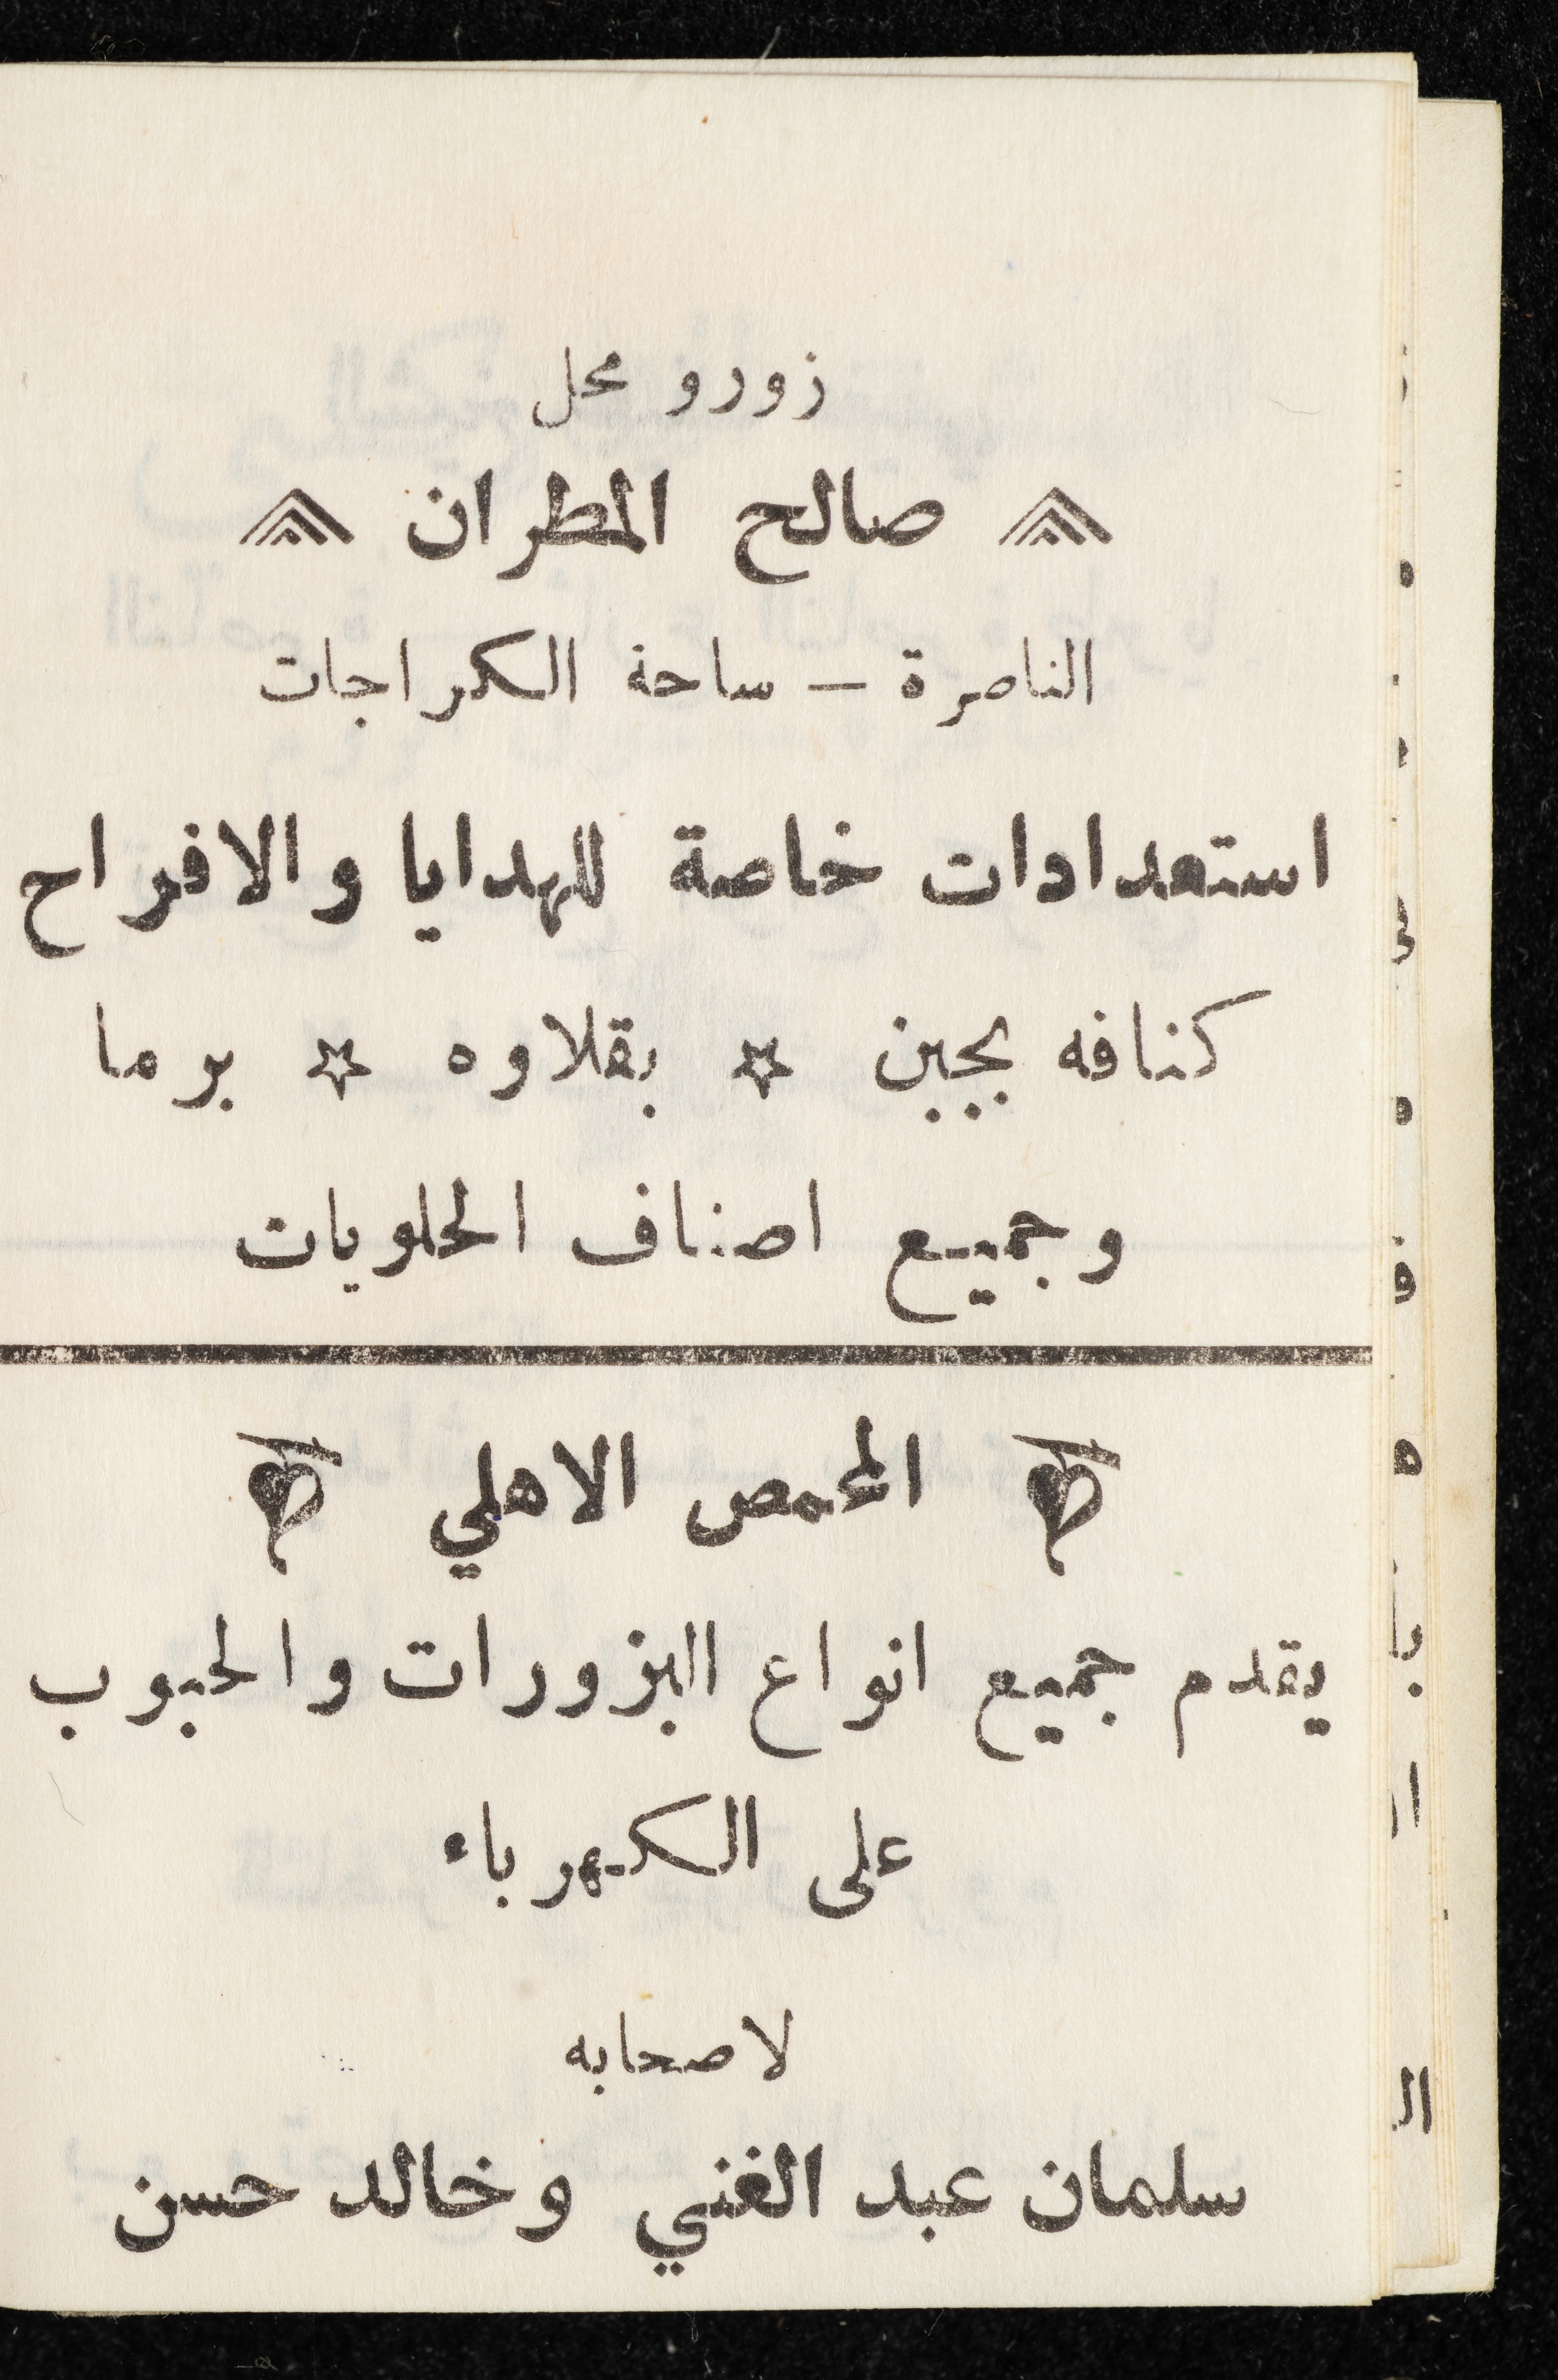 زورو محل
صالح المطران
الناصرة — ساحة الكراجات
استعدادات خاصة للهدايا والافراح
كنافه بجبن ☆ بقلاوه ☆ برما
وجميع اصناف الحلويات
المحمص الاهلي
يقدم جميع انواع البزورات والحبوب
على الكهرباء
لاصحابه
سلمان عبد الغني وخالد حسن